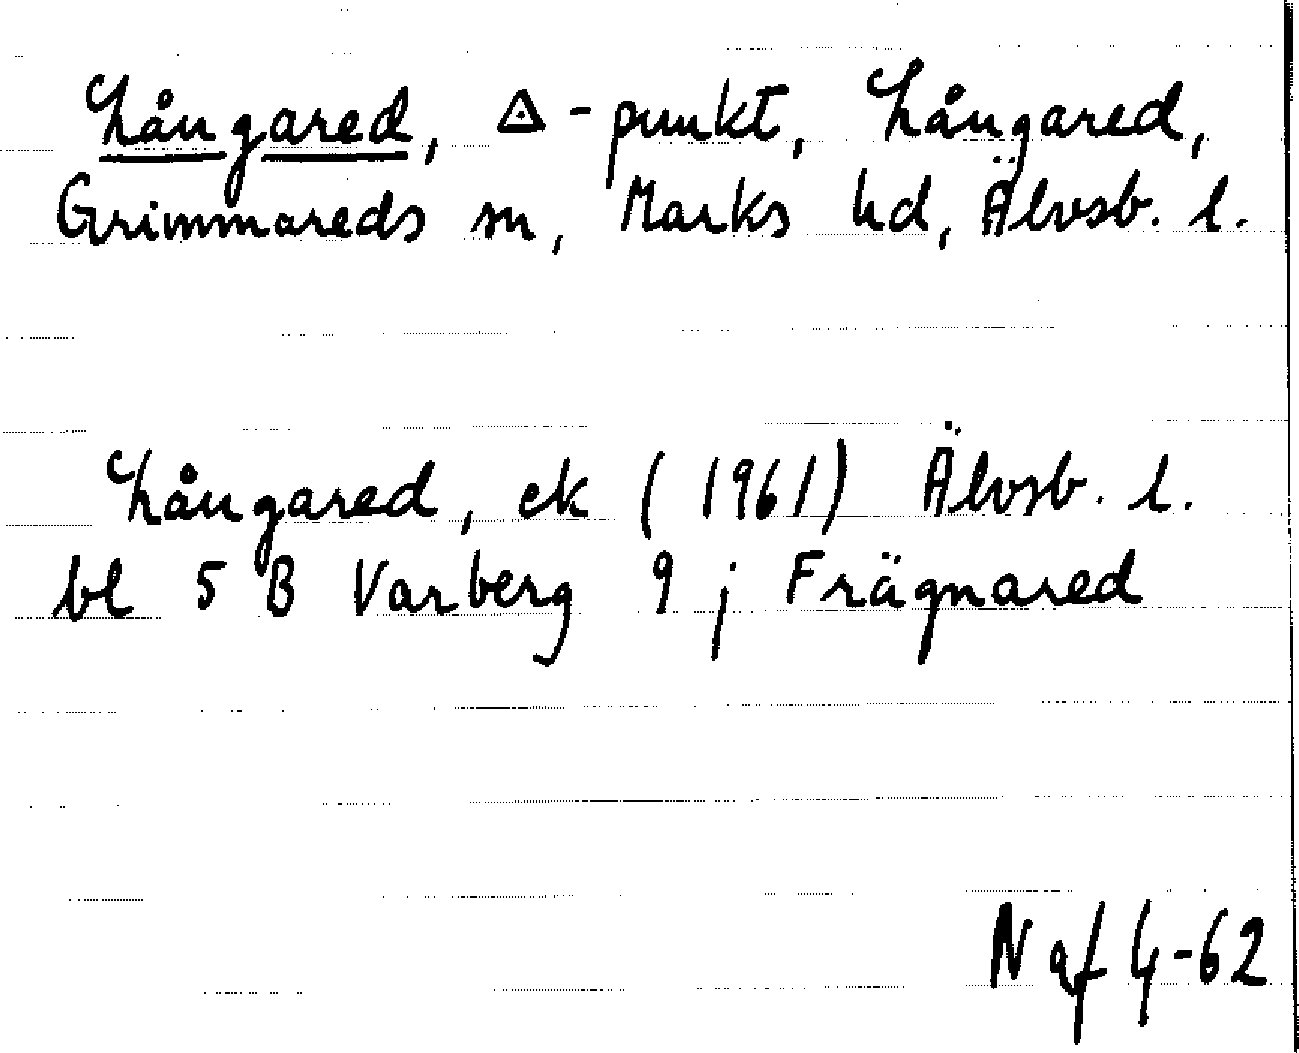 Långared, △-punkt, Långared,
Grimmareds sn, Marks hd, Älvsb. l.
Långared, ek (1961) Älvsb. l.
bl 5 B Varberg 9 j Frägnared
N af 4-62